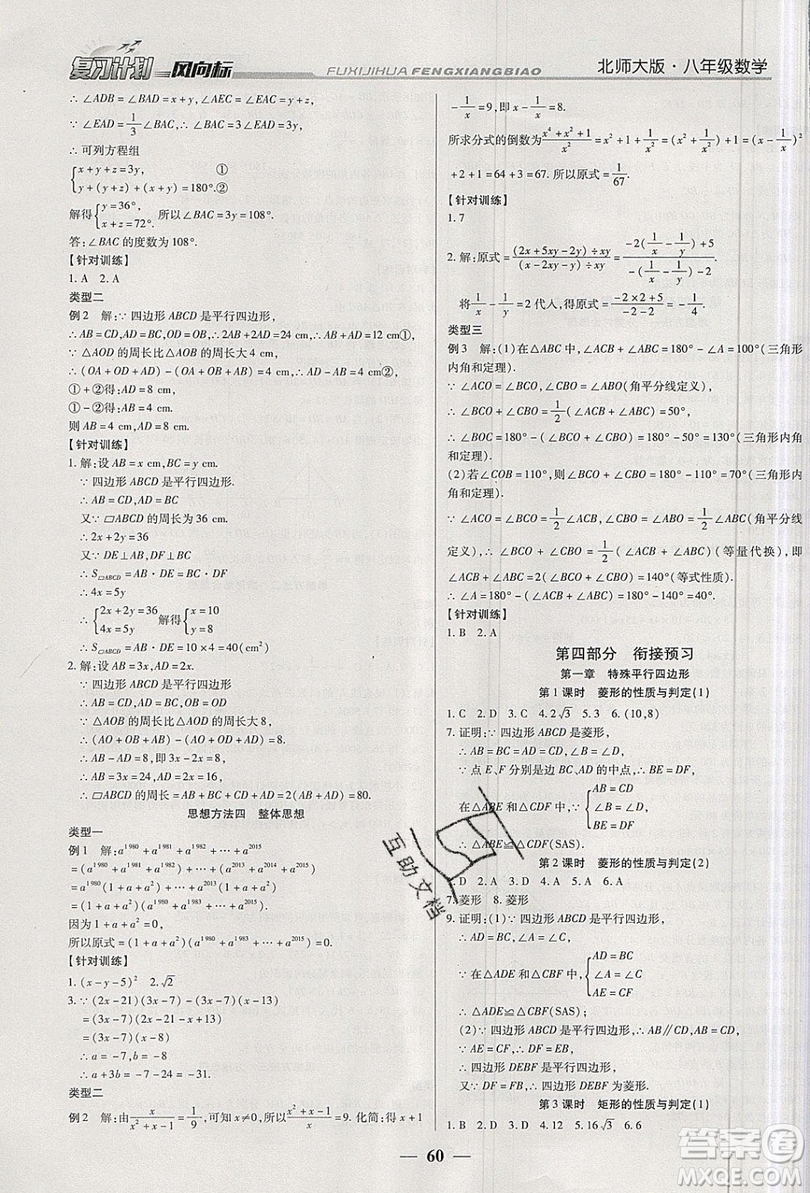 复习计划 风向标
FUXIJIHUA FENGXIANGBIAO
北师大版·八年级数学
∴∠ADB=∠BAD=x+y,∵∠BAC=3y,
∠EAD=1/3∠BAC=y,
∴可列方程组
{x+y+z=3y, ①
y+(y+z)+(x+y)=180°. ②
解得{y=36°, x+z=72°. 所以∠BAC=3y=108°.
答:∠BAC的度数为108°.
【针对训练】
1.A 2.A
类型二
例2 解:∵四边形ABCD是平行四边形,
∴AB=CD,AD=BC,OB=OD,∴2AB+2AD=24 cm,∴AB+AD=12 cm①
∵△AOD的周长比△AOB的周长大4 cm,
∴(OA+OD+AD)-(OA+OB+AB)=4 cm,∴AD-AB=4 cm②
①+②得:AD=8 cm,
①-②得:AB=4 cm,
则AB=4 cm,AD=8 cm.
【针对训练】
1.解:设AB=x cm,BC=y cm.
∵四边形ABCD是平行四边形.
∴AB=CD,AD=BC
又∵▱ABCD的周长为36 cm.
∴2x+2y=36
又∵DE⊥AB,DF⊥BC
∴S▱ABCD=AB·DE=BC·DF
∴4x=5y
∴{2x+2y=36 4x=5y 解得{x=10 y=8
∴S▱ABCD=AB·DE=10×4=40(cm²)
2.解:设AB=x cm,BC=y cm.
∵四边形ABCD是平行四边形
∴AB=CD,AD=BC,OA=OC
∵△AOB的周长比△BOC的周长大8,
∴(AO+OB+AB)-(BO+OC+BC)=8
∴AB-BC=8,即3x-2x=8,∴x=8
∴AB=3x=24,BC=2x=16
∴▱ABCD的周长=2(AB+BC)=2×(24+16)=80.
思想方法四 整体思想
类型一
例1 解:a¹⁹⁸⁰+a¹⁹⁸¹+a¹⁹⁸²+…+a²⁰¹⁵
=(a¹⁹⁸⁰+a¹⁹⁸¹+a¹⁹⁸²)+…+(a²⁰¹³+a²⁰¹⁴+a²⁰¹⁵)
=a¹⁹⁸⁰(1+a+a²)+…+a²⁰¹³(1+a+a²)
=(1+a+a²)(a¹⁹⁸⁰+a¹⁹⁸³+…+a²⁰¹³).
因为1+a+a²=0,
所以原式=(1+a+a²)(a¹⁹⁸⁰+a¹⁹⁸³+…+a²⁰¹³)=0.
【针对训练】
1.(x-y-5)² 2.√2
3.∵(2x-21)(3x-7)-(3x-7)(x-13)
=(3x-7)(2x-21-x+13)
=(3x-7)(x-8)=(3x+a)(x+b)
∴a=-7,b=-8
∴a+3b=-7-24=-31
类型二
例2 解:由x/(x²+x-1)=1/9,可知x≠0,所以(x²+x-1)/x=9.化简:得x+1
-1/x=9,即x-1/x=8.
所求分式的倒数为(x⁴+x²+1)/x²=x²+1+1/x²=(x²+1/x²)+1=(x-1/x)²
+2+1=64+3=67.所以原式=1/67.
【针对训练】
1.7
2.解:原式=((2x+5xy-2y)÷xy)/((x-2xy-y)÷xy)=(-2(1/x-1/y)+5)/(-(1/x-1/y)-2)
将1/x-1/y=2代人,得原式=(-2×2+5)/(-2-2)=-1/4
类型三
例3 解:(1)在△ABC中,∠ACB+∠ABC=180°-∠A=100°(三角形
内角和定理).
∵∠ACO=∠BCO,∠CBO=∠ABO(角平分线定义),
∴∠BCO+∠CBO=1/2(∠ACB+∠ABC)=50°,
∴∠BOC=180°-(∠BCO+∠CBO)=180°-50°=130°(三角形内
角和定理).
(2)若∠COB=110°,则∠BCO+∠CBO=180°-110°=70°(三角形内
角和定理).
∵∠ACO=∠BCO=1/2∠ACB,∠CBO=∠ABO=1/2∠ABC(角平分线
定义),∴∠BCO+∠CBO=1/2(∠ACB+∠ABC)(等量代换),即
∠ABC+∠ACB=2(∠BCO+∠CBO)=140°(等式性质).
∴∠A=180°-(∠ABC+∠ACB)=180°-140°=40°.
【针对训练】
1.B 2.A
第四部分 衔接预习
第一章 特殊平行四边形
第1课时 菱形的性质与判定(1)
1.C 2.D 3.D 4.2√3 5.3 6.(10,8)
7.证明:∵四边形ABCD是菱形,
∴AB=BC=CD=AD,∠B=∠D,
∵点E、F分别是边BC、AD的中点,∴BE=DF,
在△ABE和△CDF中,∵{AB=CD ∠B=∠D BE=DF
∴△ABE≌△CDF(SAS).
第2课时 菱形的性质与判定(2)
1.D 2.D 3.A 4.A 5.A 6.20
7.菱形 8.菱形
9.证明:(1)∵四边形ABCD是平行四边形,
∴AD=BC,∠A=∠C,
∵在△ADE和△CBF中,{AD=BC ∠A=∠C AE=CF
∴△ADE≌△CBF(SAS);
(2)∵四边形ABCD是平行四边形,∴AB∥CD,AB=CD,
∵AE=CF,∴DF=EB,
∴四边形DEBF是平行四边形,
又∵DF=FB,∴四边形DEBF为菱形.
第3课时 矩形的性质与判定(1)
1.B 2.D 3.A 4.B 5.2√3 6.6
60
互助文档
答案圈
MXQE.COM